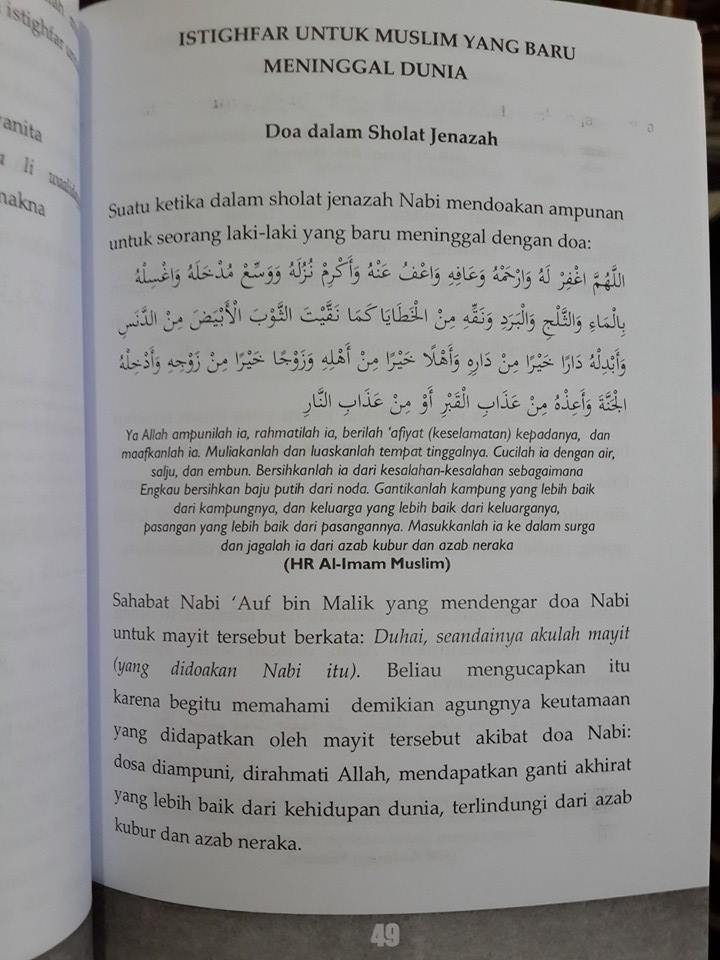 istighfar un
anita
a li walid
nakna
ISTIGHFAR UNTUK MUSLIM YANG BARU
MENINGGAL DUNIA
Doa dalam Sholat Jenazah
Suatu ketika dalam sholat jenazah Nabi mendoakan ampunan
untuk seorang laki-laki yang baru meninggal dengan doa:
اللَّهُمَّ اغْفِرْ لَهُ وَارْحَمْهُ وَعَافِهِ وَاعْفُ عَنْهُ وَأَكْرِمْ نُزُلَهُ وَوَسِّعْ مُدْخَلَهُ وَاغْسِلْهُ
بِالْمَاءِ وَالثَّلْجِ وَالْبَرَدِ وَنَقِّهِ مِنْ الْخَطَايَا كَمَا نَقَّيْتَ الثَّوْبَ الْأَبْيَضَ مِنْ الدَّنَسِ
وَأَبْدِلْهُ دَارًا خَيْرًا مِنْ دَارِهِ وَأَهْلًا خَيْرًا مِنْ أَهْلِهِ وَزَوْجًا خَيْرًا مِنْ زَوْجِهِ وَأَدْخِلْهُ
الْجَنَّةَ وَأَعِذْهُ مِنْ عَذَابِ الْقَبْرِ أَوْ مِنْ عَذَابِ النَّارِ
Ya Allah ampunilah ia, rahmatilah ia, berilah ‘afiyat (keselamatan) kepadanya, dan
maafkanlah ia. Muliakanlah dan luaskanlah tempat tinggalnya. Cucilah ia dengan air,
salju, dan embun. Bersihkanlah ia dari kesalahan-kesalahan sebagaimana
Engkau bersihkan baju putih dari noda. Gantikanlah kampung yang lebih baik
dari kampungnya, dan keluarga yang lebih baik dari keluarganya,
pasangan yang lebih baik dari pasangannya. Masukkanlah ia ke dalam surga
dan jagalah ia dari azab kubur dan azab neraka
(HR Al-Imam Muslim)
Sahabat Nabi ‘Auf bin Malik yang mendengar doa Nabi
untuk mayit tersebut berkata: Duhai, seandainya akulah mayit
(yang didoakan Nabi itu). Beliau mengucapkan itu
karena begitu memahami demikian agungnya keutamaan
yang didapatkan oleh mayit tersebut akibat doa Nabi:
dosa diampuni, dirahmati Allah, mendapatkan ganti akhirat
yang lebih baik dari kehidupan dunia, terlindungi dari azab
kubur dan azab neraka.
49